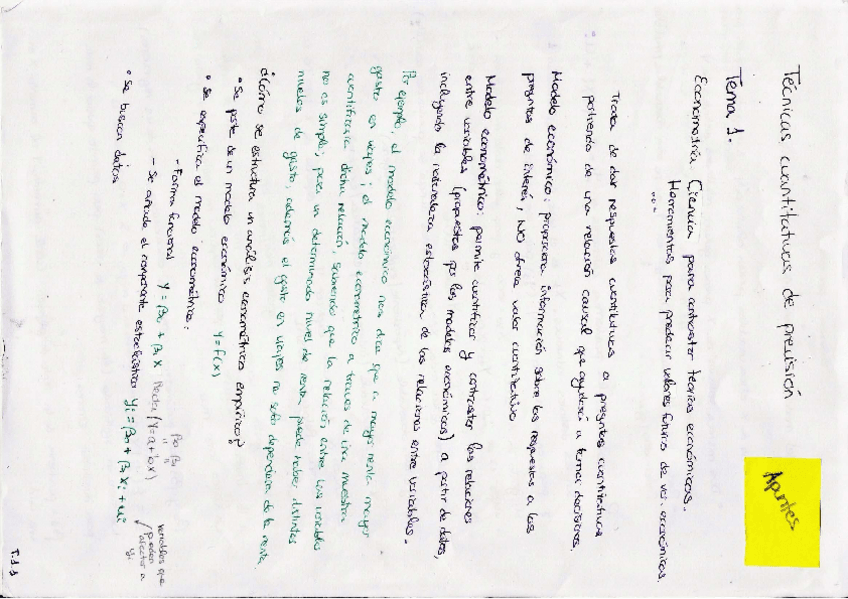 Técnicas cuantitativas de previsión
Apuntes
Tema 1.
Econometría Ciencia para contrastar teorías económicas.
Herramientas para predecir valores futuros de var. económicas.
Trata de dar respuestas cuantitativas a preguntas cuantitativas
partiendo de una relación causal que ayudará a tomar decisiones.
Modelo económico: proporciona información sobre las respuestas a las
preguntas de interés, NO ofrece valor cuantitativo
Modelo econométrico: permite cuantificar y contrastar las relaciones
entre variables (propuestas por los modelos económicos) a partir de datos,
incluyendo la naturaleza estocástica de las relaciones entre variables.
Por ejemplo, el modelo económico nos dice que a mayor renta mayor
gasto en viajes; el modelo econométrico a través de una muestra
cuantificaría dicha relación, sabiendo que la relación entre las variables
no es simple; pues un determinado nivel de renta puede haber distintos
niveles de gasto, además el gasto en viajes no solo dependerá de la renta.
¿Cómo se estructura un análisis econométrico empírico?
• Se parte de un modelo económico Y = F(X)
• Se especifica el modelo econométrico:
- Forma funcional Y = β0 + β1 X Recta (Y = a + b X)
- Se añade el componente estocástico Yi = β0 + β1 Xi + ui
variables que pueden afectar a Yi
• Se buscan datos
T.1.1